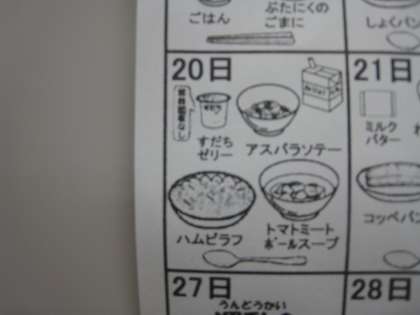 ごはん
ぶたにくの
ごまに
しょくパン
20日
21日
すだち
ゼリー
アスパラソテー
ミルク
バター
ハムピラフ
トマトミート
ボールスープ
コッペパン
27日
28日
うんどうかい